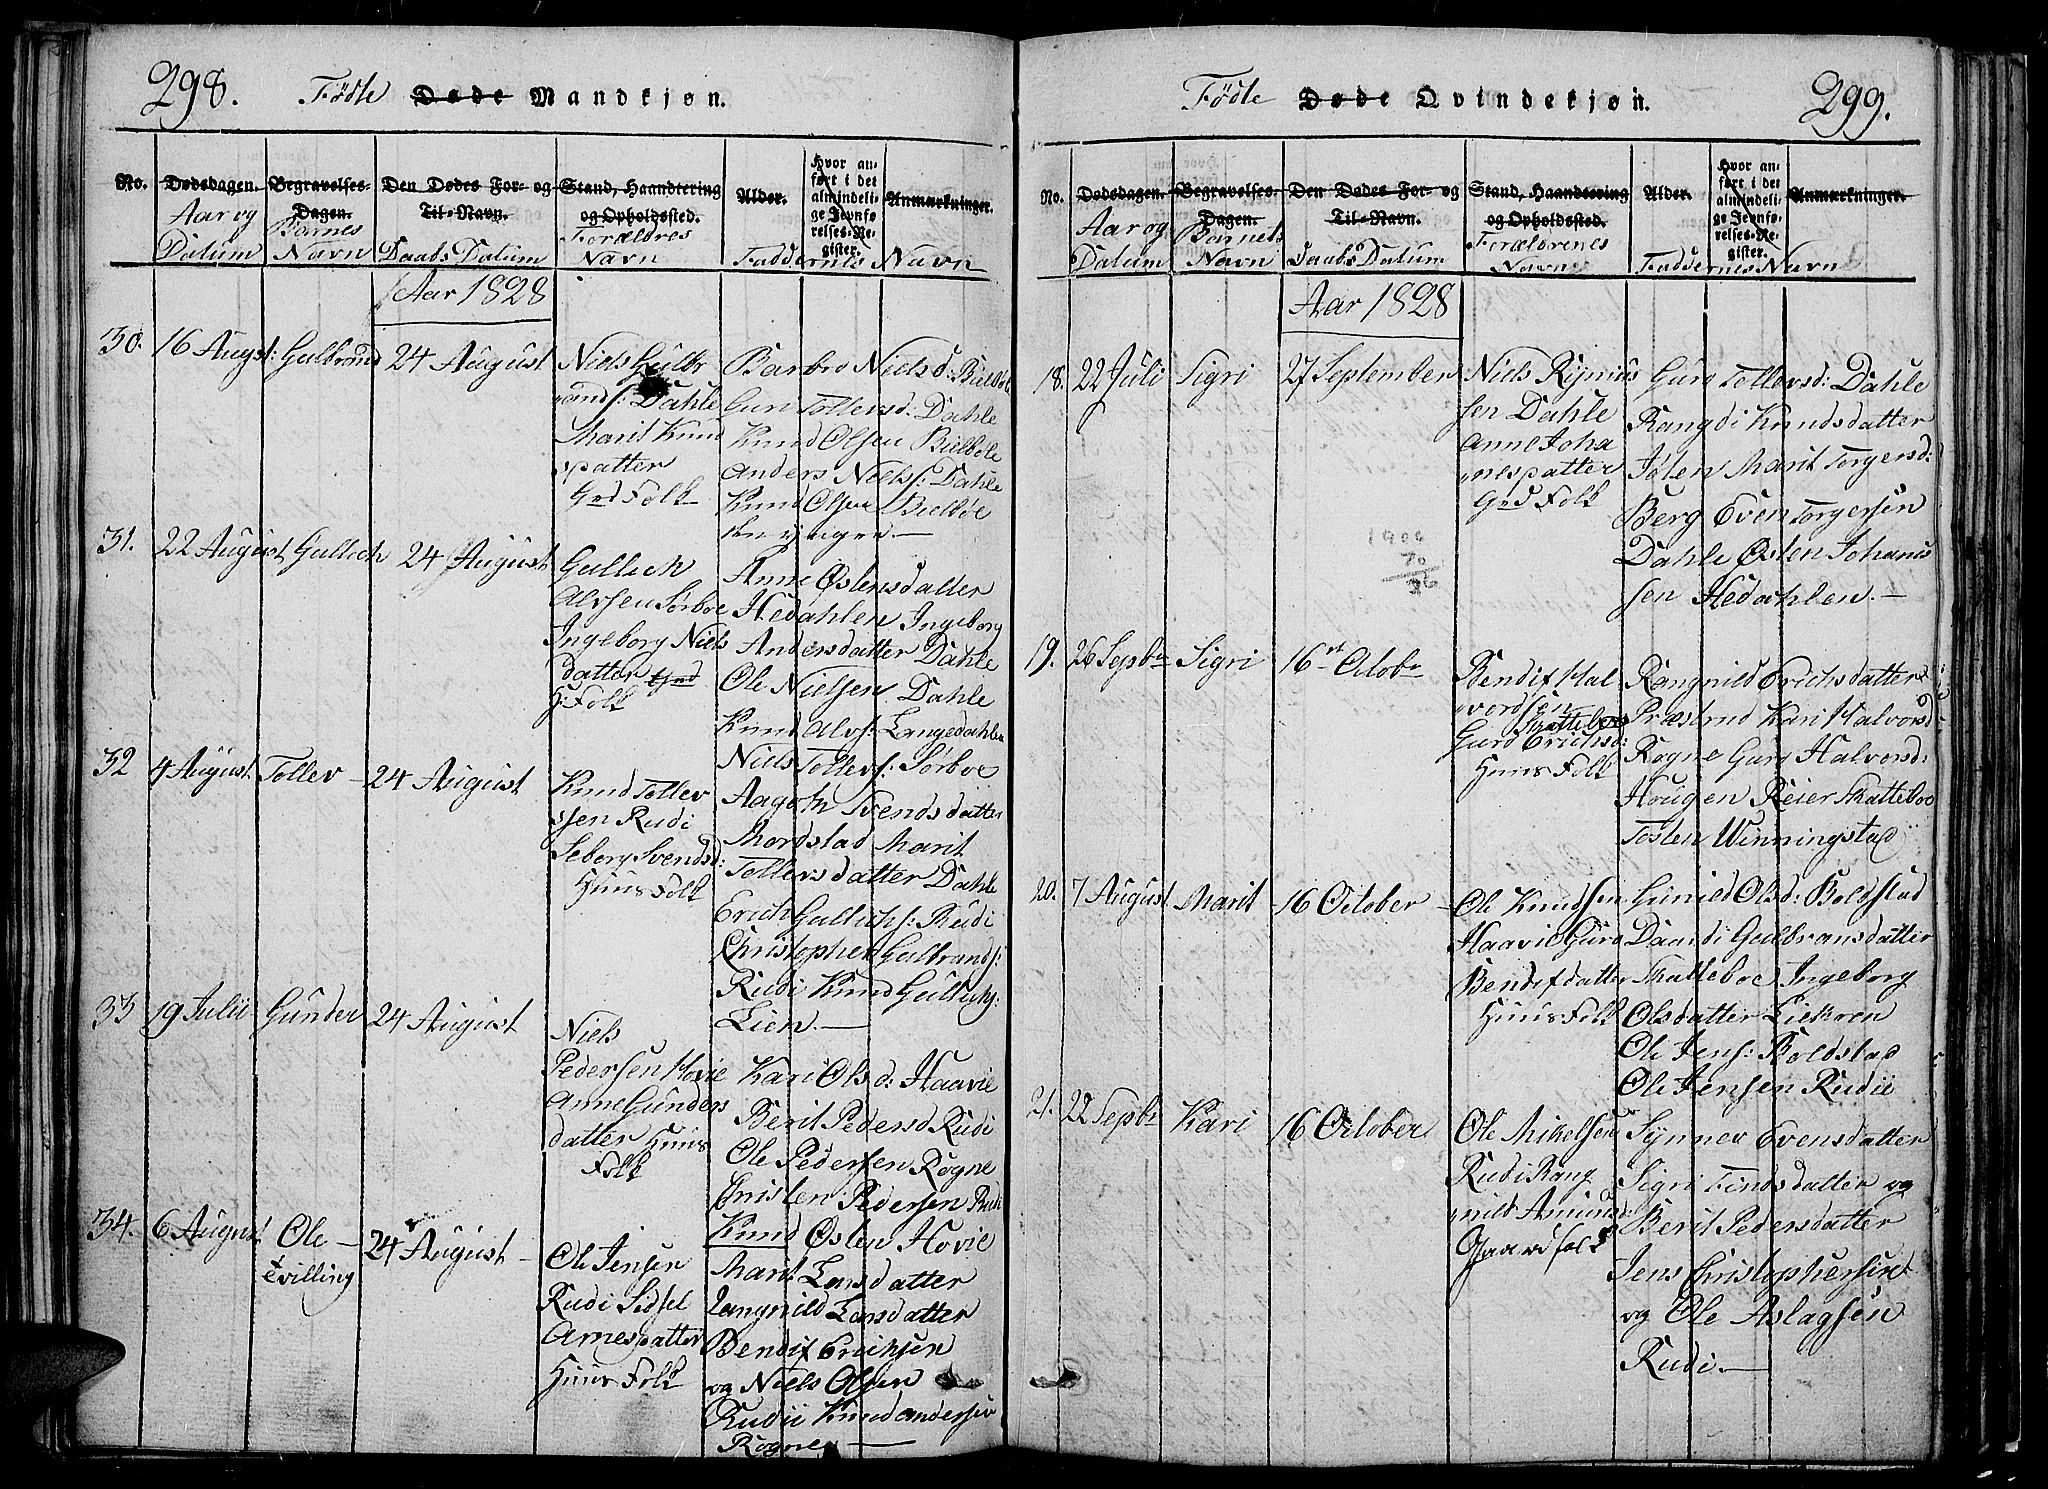 298.
Födte Døde Mandkjøn.
No.
Dødsdagen.
Aar og
Datum
Begravelses-
Dagen.
Barnes
Navn
Den Dødes For- og
Til-Navn.
Daabs Datum
Stand, Haandtering
og Opholdssted.
Forældres
Navn
Alder.
Hvor an-
ført i det
almindeli-
ge Jevnfø-
relses-Re-
gister.
Anmærkninger.
Faddernes Navn
Aar 1828
30. 16 Augst: Gulbrand 24 August
Niels Gulbr
andf: Dahle
Marit Knud
spatter
Grd Folk
Barbro Nielsd: Bielbøl
Guri Tollevsd: Dahle
Knud Olsen Bielbøle
Anders Nielsf: Dahle
Knud Olsen Bielbøe
den yngere.—
31. 22 August Gullich 24 August
Gullich
Alvsen Sørboe
Ingeborg Niels
datter Grd
H: Folk
Anne Østensdatter
Hedahlen Ingeborg
Andersdatter Dahle
Ole Nielsen Dahle
Knud Alvs: Langedahlen
Niels Tollevs: Sørboe
32 4 August Tollev - 24 August
Knud Tollev
sen Rudi
Seborg Svendsd:
Huus Folk
Aagoth Svendsdatter
Mordstad Marit
Tollevsdatter Dahle
Erich Gullichs: Rudi
Christopher Gulbrands:
Rudi Knud Gullichs:
Lien.—
33 19 Julii Gunder 24 August
Niels
Pedersen Hovie
Anne Gunders
datter Huus
Folk
Kari Olsd: Haavie
Berit Pedersd Rudi
Ole Pedersen Rogne
Christen Pedersen Rudi
Knud Østen Hovie
34. 6 August Ole - 24 August -
Tvilling
Ole Jensen
Rudi Sidsel
Arnespatter
Huus Folk
Marit Larsdatter
Rangnild Larsdatter
Bendix Erichsen
og Niels Olsen
Rudii Knud Andersen
Rogne —
299.
Födte Døde Qvindekjøn.
No.
Dødsdagen.
Aar og
Datum
Begravelses-
Dagen.
Barnets
Navn
Den Dødes For- og
Til-Navn.
Daabs Datum
Stand, Haandtering
og Opholdssted.
Forældrenes
Navn
Alder.
Hvor an-
ført i det
almindeli-
ge Jevnfø-
relses-Re-
gister.
Anmærkninger.
Faddernes Navn
Aar 1828
18. 22 Juli Sigri 27 September
Niels Rynius
sen Dahle
Anne Joha
nespatter
Grd Folk
Guro Tollevsd: Dahle
Rangdi Knudsdatter
Islen Marit Torgersd:
Berg Even Torgersen
Dahle Østen Johanis
sen Hedahlen.—
1900
70
19. 26 Sepbr Sigri 16 Octobr
Bendix Hal
vordsen
Skattebøe
Guro Erichsd:
Huus Folk
Rangnild Erichsdatter
Præstrud Kari Halvorsd
Rogne Guro Halvorsd:
Hougen Reier Skatteboe
Tosten Winningstad
20. 7 August Marit 16 October -
Ole Knudsen
Haavie Guro
Bendixdatter
Huus Folk
Gunild Olsd: Boldstad
Daardi Gulbransdatter
Skatteboe Ingeborg
Olsdatter Liekren
Ole Jens: Boldstad
Ole Jensen Rudii
21. 22 Sepbr Kari 16 October
Ole Mikelsen
Rudi Rang
nild Amunds:
Gaardfolk
Synnev Evensdatter
Sigri Findsdatter og
Berit Pedersdatter
Jens Christophersen
og Ole Aslagsen
Rudi.—